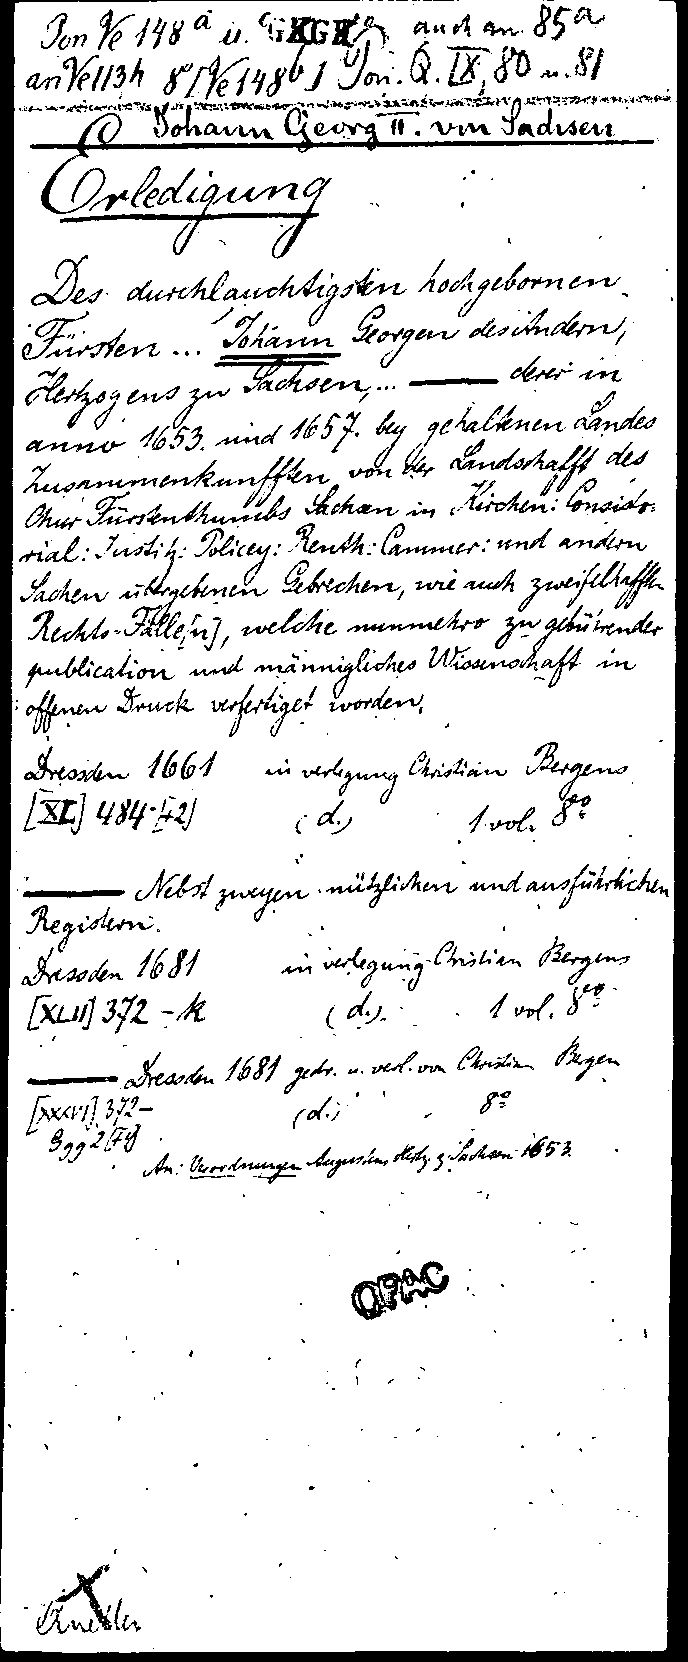 Pon Ve 148 a u. auch an 85a
an Ve 113h 8° [Ve 148b] Pon. Q. IX, 80 u. 81
Johann Georg II. von Sachsen
Erledigung
Des durchlauchtigsten hochgebornen
Fürsten ... Johann Georgen des Andern,
Hertzogens zu Sachsen, ... — derer in
anno 1653. und 1657. bey gehaltenen Landes
Zusammenkunfften von der Landschafft des
Chur Fürstenthumbs Sachsen in Kirchen: Consisto-
rial: Justitz: Policey: Renth: Cammer: und andern
Sachen übergebenen Gebrechen, wie auch zweifelhafften
Rechts-Fälle[n], welche nunmehro zu gebührender
publication und männigliches Wissenschaft in
offenen Druck verfertiget worden.
Dressden 1661 in verlegung Christian Bergens
[XL] 484 [+2] (d.) 1 vol. 8vo
— Nebst zweyen nützlichen und ausführlichen
Registern.
Dressden 1681 in verlegung Christian Bergens
[XLII] 372 - k (d.) 1 vol. 8vo
— Dressden 1681 gedr. u. verl. von Christian Bergen
[XXXVI] 372- (d.) 8°
An: Verordnungen Augustens Hertz. z. Sachsen 1653.
OPAC